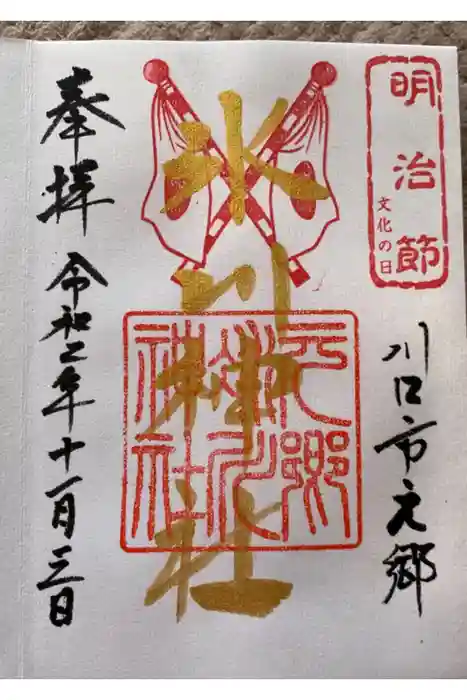 明治節
文化の日
川口市元郷
氷川神社
元郷
氷川
神社
奉拝
令和二年十一月三日